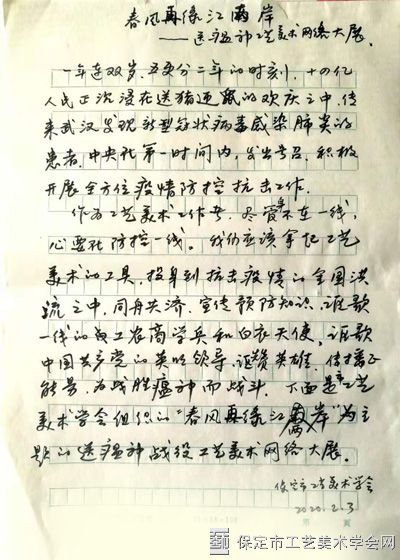 春风再绿江南岸
——送瘟神工艺美术网络大展
一年连双岁,五更分二年的时刻,十四亿
人民正沉浸在送猪迎鼠的欢庆之中,传
来武汉发现新型冠状病毒感染肺炎的
患者,中央在第一时间内,发出号召,积极
开展全方位疫情防控抗击工作.
作为工艺美术工作者,尽管身不在一线,
心要在防控一线。我们应该拿起工艺
美术的工具,投身到抗击疫情的全国洪
流之中,同舟共济,宣传预防知识,讴歌
一线的工农商学兵和白衣天使,讴歌
中国共产党的英明领导,讴赞英雄,传播正
能量,为战胜瘟神而战斗。下面是工艺
美术学会组织的"春风再绿江南岸"为主
题的送瘟神战役工艺美术网络大展.
保定市工艺美术学会
2020.2.3
保定市工艺美术学会网